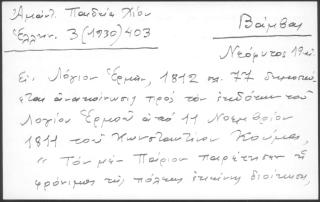 Ἀμάντ. Παιδεία Χίου
Ἑλλην. 3 (1930) 403
Βάμβας
Νεόφυτος
Εἰς Λόγιον Ἑρμῆν, 1812 σελ. 77 δημοσιεύ-
εται ἀνακοίνωσις πρὸς τὸν ἐκδότην τοῦ
Λογίου Ἑρμοῦ ἀπὸ 11 Νοεμβρίου
1811 τοῦ Κωνσταντίνου Κούμα,
" Τὸν μὲν Πάριον παρέτησεν ἡ
φρόνιμος τῆς πόλεως ἐκείνης διοίκησις,